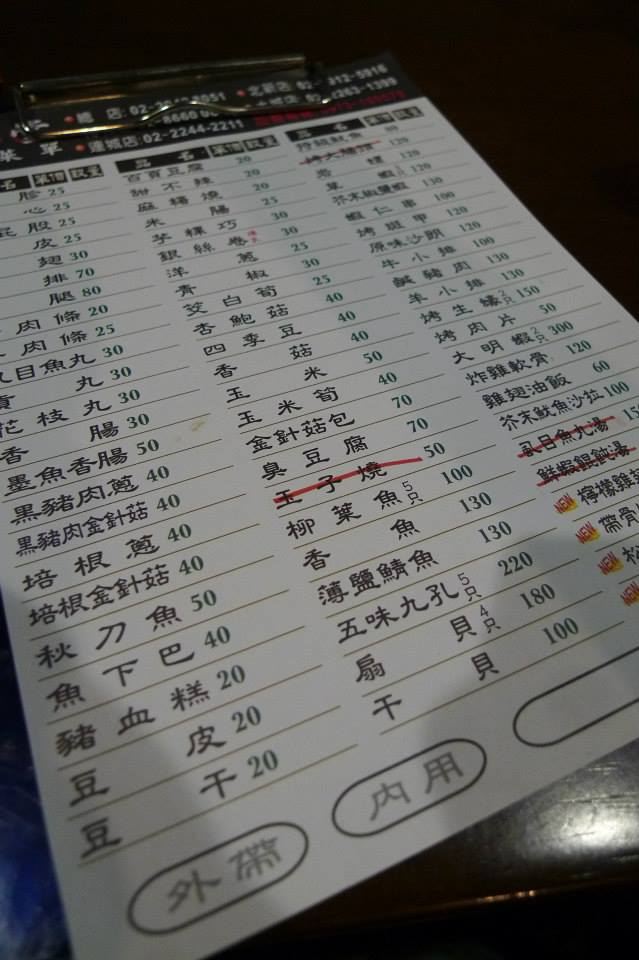 北新店
連城店:02-2244-2211
菜單
品名 單價 數量
心 25
皮 25
翅 30
排 70
腿 80
肉條 20
肉條 25
目魚丸 30
丸 30
花枝丸 30
香腸 30
墨魚香腸 50
黑豬肉蔥 40
黑豬肉金針菇 40
培根蔥 40
培根金針菇 40
秋刀魚 50
魚下巴 40
豬血糕 20
豆皮 20
豆干 20
品名 單價 數量
百頁豆腐 20
甜不辣 20
麻糬燒 20
米腸 25
芋粿巧 30
銀絲卷 30
洋蔥 25
青椒 30
茭白筍 25
杏鮑菇 40
四季豆 40
香菇 40
玉米 50
玉米筍 40
金針菇包 70
臭豆腐 70
玉子燒 50
柳葉魚5只 100
香魚 130
薄鹽鯖魚 130
五味九孔5只 220
扇貝4只 180
干貝 100
品名 單價 數量
120
草蝦 120
芥末椒鹽蝦 130
蝦仁串 100
烤斑甲 120
原味沙朗 120
牛小排 100
鹹豬肉 130
羊小排 130
烤生蠔2只 150
烤肉片 50
大明蝦2只 300
炸雞軟骨 120
雞翅油飯 60
芥末魷魚沙拉 100
虱目魚丸湯
鮮蝦餛飩湯
NEW 檸檬雞
NEW 帶骨
NEW
NEW
外帶
內用